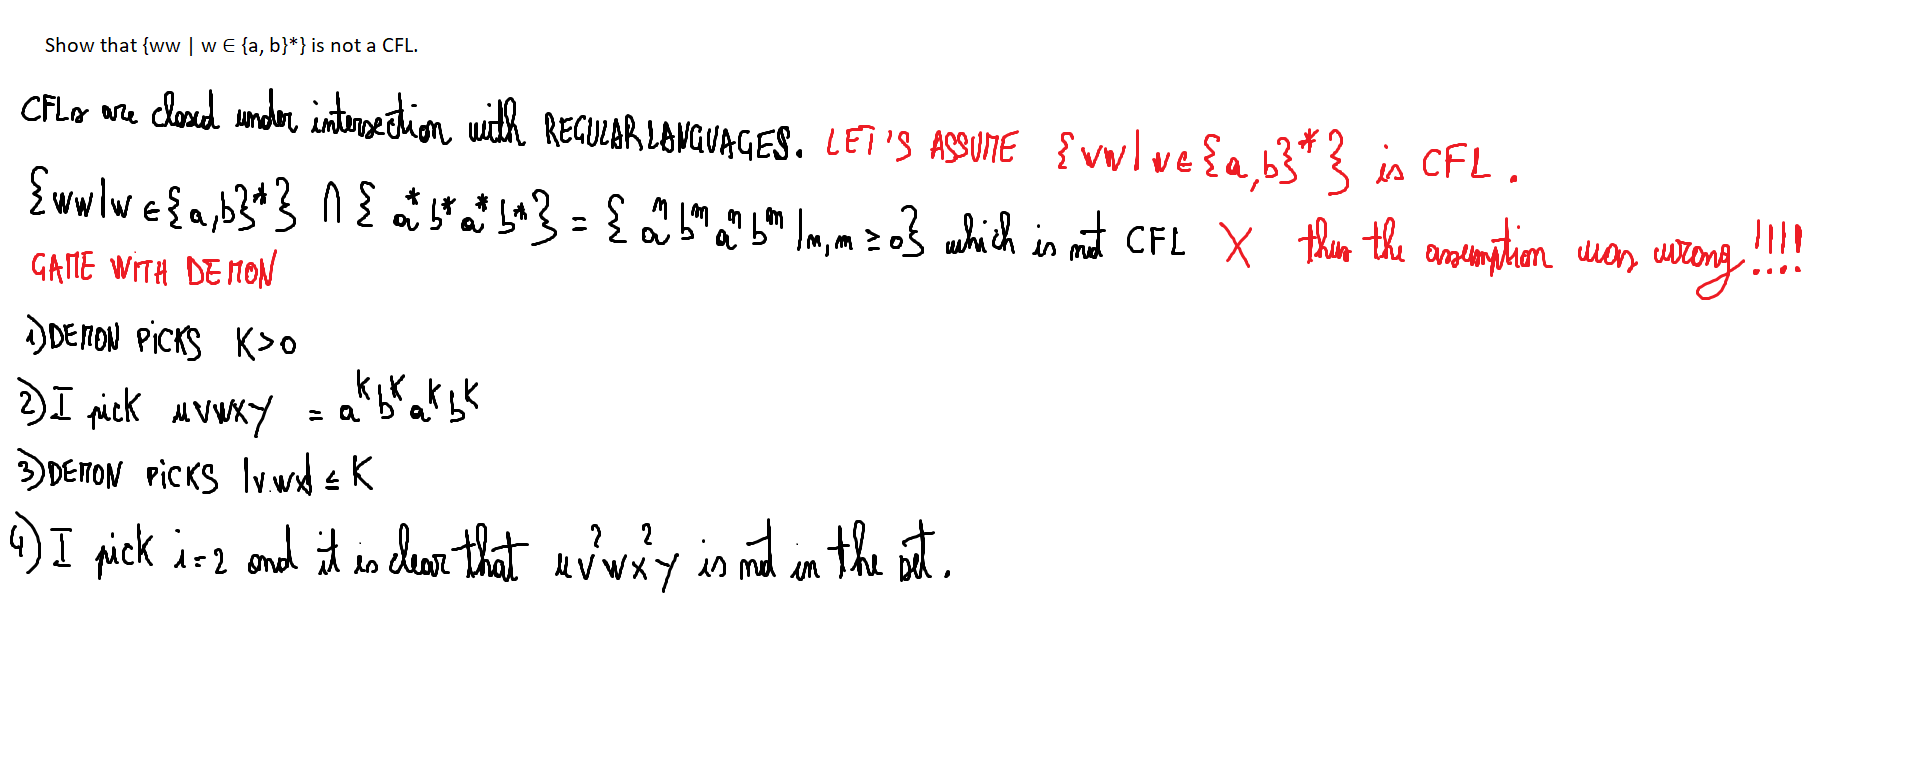 Show that {ww | w ∈ {a, b}*} is not a CFL.
CFLs are closed under intersection with REGULAR LANGUAGES. LET'S ASSUME {ww|w∈{a,b}*} is CFL.
{ww|w∈{a,b}*} ∩ {a*b*a*b*} = {aⁿbᵐaⁿbᵐ |n,m ≥ 0} which is not CFL X thus the assumption was wrong!!!!
GAME WITH DEMON
1) DEMON PiCKS K>0
2) I pick uvwxy = aᴷbᴷaᴷbᴷ
3) DEMON PiCKS |vwx| ≤ K
4) I pick i=2 and it is clear that uv²wx²y is not in the set.